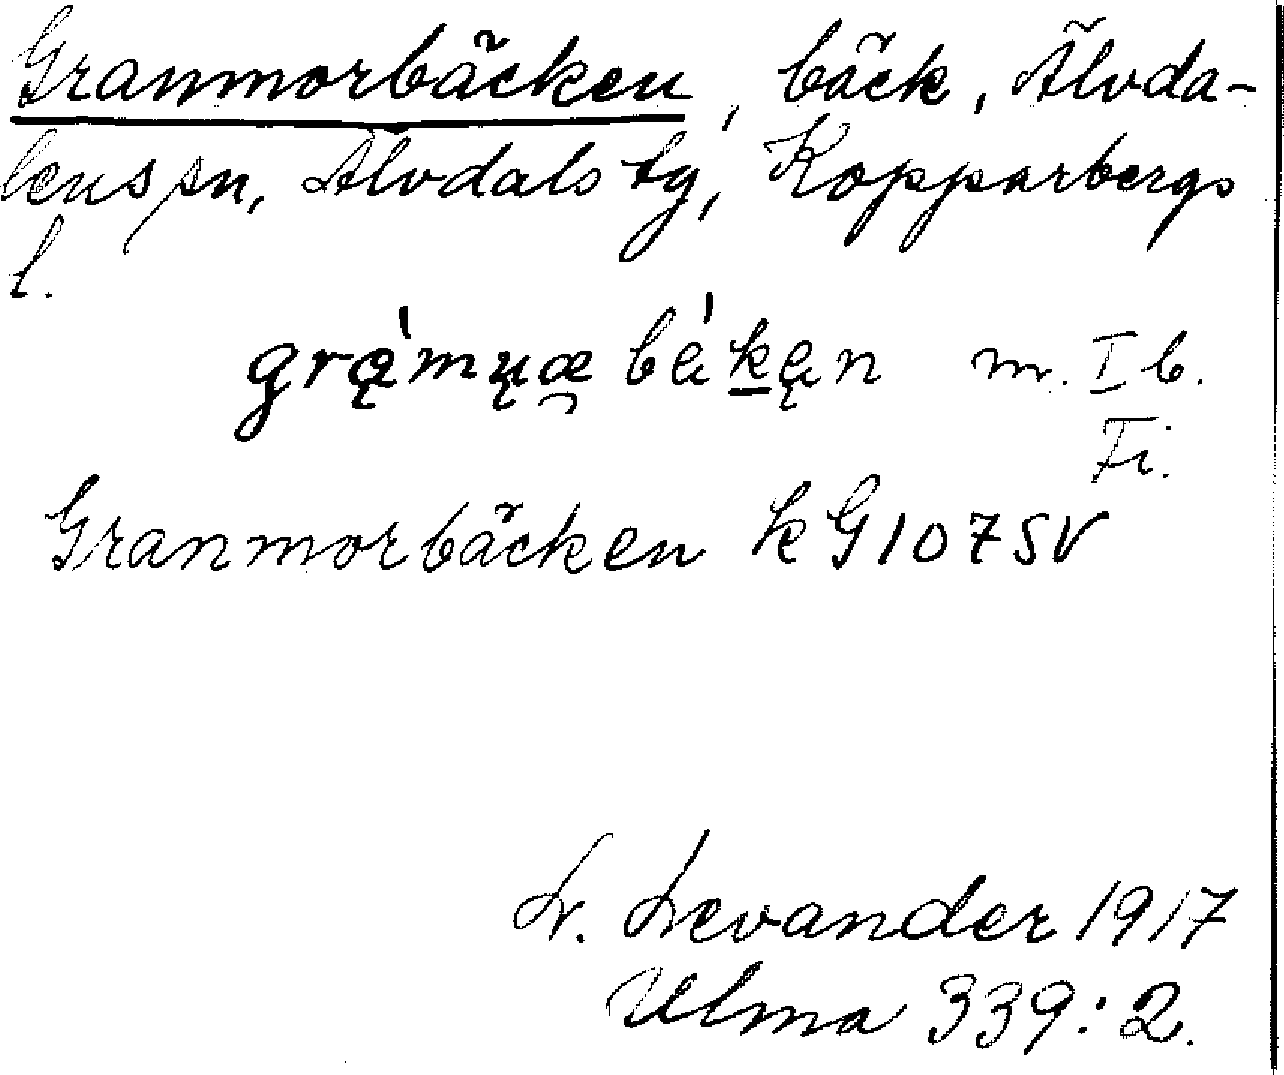 Granmorbäcken, bäck, Älvda-
lens sn, Älvdals tg, Kopparbergs
l.
grą̀mųæ bèkęn m. I b.
Fi.
Granmorbäcken kG107SV
L. Levander 1917
Ulma 339:2.